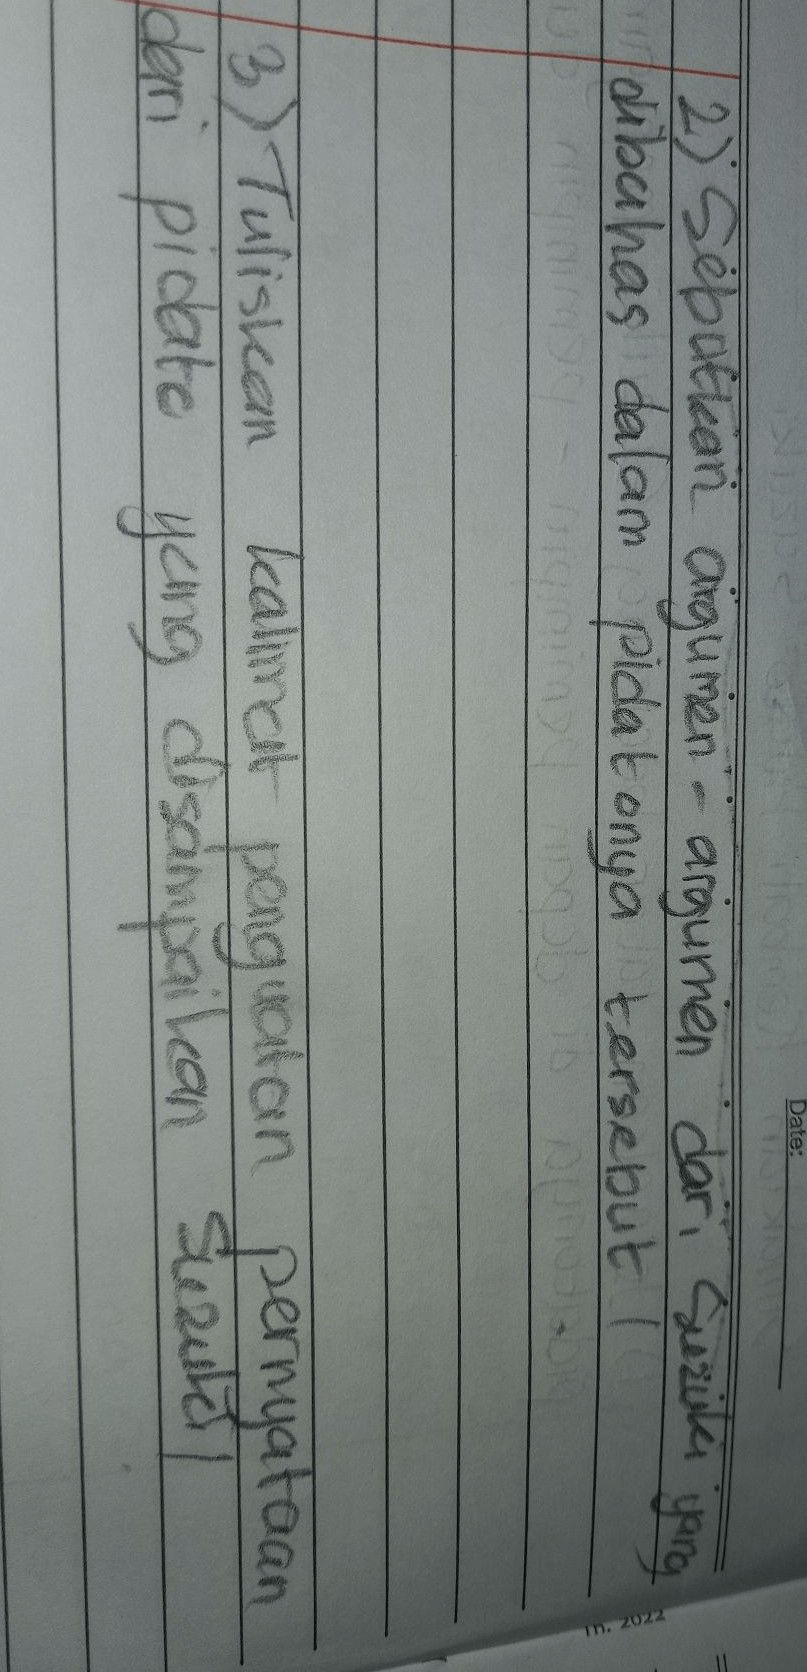 Date:
2) Sebutkan argumen - argumen dari Suzuki yang
dibahas dalam pidatonya tersebut !
3) Tuliskan kalimat penguatan pernyataan
dari pidato yang disampaikan Suzuki !
Th. 2022